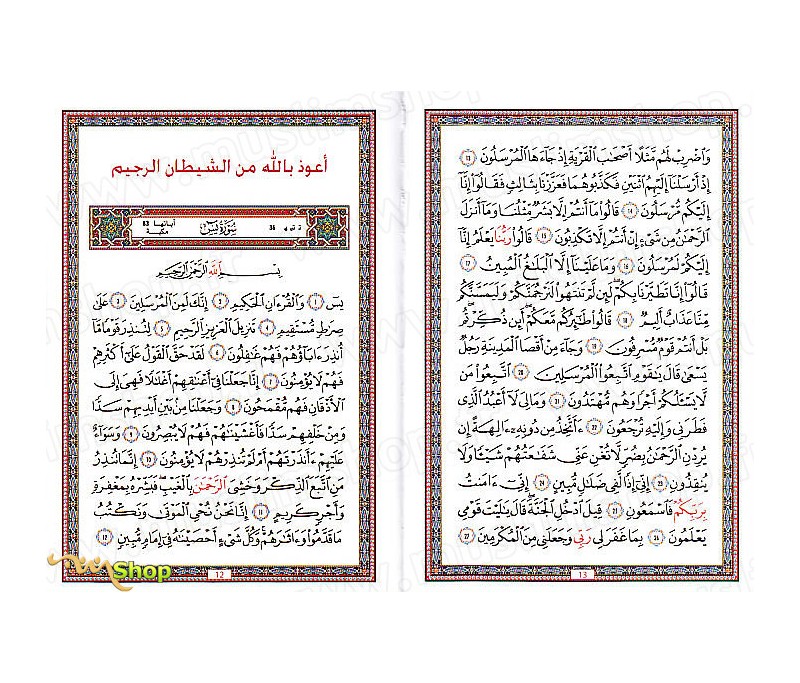 أعوذ بالله من الشيطان الرجيم
36 سُورَةُ يسٓ آياتها 83
مكية
بِسْمِ اللَّهِ الرَّحْمَٰنِ الرَّحِيمِ
يسٓ ١ وَالْقُرْءَانِ الْحَكِيمِ ٢ إِنَّكَ لَمِنَ الْمُرْسَلِينَ ٣ عَلَىٰ
صِرَٰطٍ مُّسْتَقِيمٍ ٤ تَنزِيلَ الْعَزِيزِ الرَّحِيمِ ٥ لِتُنذِرَ قَوْمًا مَّا
أُنذِرَ ءَابَآؤُهُمْ فَهُمْ غَٰفِلُونَ ٦ لَقَدْ حَقَّ الْقَوْلُ عَلَىٰٓ أَكْثَرِهِمْ
فَهُمْ لَا يُؤْمِنُونَ ٧ إِنَّا جَعَلْنَا فِىٓ أَعْنَٰقِهِمْ أَغْلَٰلًا فَهِىَ إِلَى
الْأَذْقَانِ فَهُم مُّقْمَحُونَ ٨ وَجَعَلْنَا مِنۢ بَيْنِ أَيْدِيهِمْ سَدًّا
وَمِنْ خَلْفِهِمْ سَدًّا فَأَغْشَيْنَٰهُمْ فَهُمْ لَا يُبْصِرُونَ ٩ وَسَوَآءٌ
عَلَيْهِمْ ءَأَنذَرْتَهُمْ أَمْ لَمْ تُنذِرْهُمْ لَا يُؤْمِنُونَ ١٠ إِنَّمَا تُنذِرُ
مَنِ اتَّبَعَ الذِّكْرَ وَخَشِىَ الرَّحْمَٰنَ بِالْغَيْبِ فَبَشِّرْهُ بِمَغْفِرَةٍ
وَأَجْرٍ كَرِيمٍ ١١ إِنَّا نَحْنُ نُحْىِ الْمَوْتَىٰ وَنَكْتُبُ
مَا قَدَّمُوا۟ وَءَاثَٰرَهُمْ وَكُلَّ شَىْءٍ أَحْصَيْنَٰهُ فِىٓ إِمَامٍ مُّبِينٍ ١٢
12
وَاضْرِبْ لَهُم مَّثَلًا أَصْحَٰبَ الْقَرْيَةِ إِذْ جَآءَهَا الْمُرْسَلُونَ ١٣
إِذْ أَرْسَلْنَآ إِلَيْهِمُ اثْنَيْنِ فَكَذَّبُوهُمَا فَعَزَّزْنَا بِثَالِثٍ فَقَالُوٓا۟ إِنَّآ
إِلَيْكُم مُّرْسَلُونَ ١٤ قَالُوا۟ مَآ أَنتُمْ إِلَّا بَشَرٌ مِّثْلُنَا وَمَآ أَنزَلَ
الرَّحْمَٰنُ مِن شَىْءٍ إِنْ أَنتُمْ إِلَّا تَكْذِبُونَ ١٥ قَالُوا۟ رَبُّنَا يَعْلَمُ إِنَّآ
إِلَيْكُمْ لَمُرْسَلُونَ ١٦ وَمَا عَلَيْنَآ إِلَّا الْبَلَٰغُ الْمُبِينُ ١٧
قَالُوٓا۟ إِنَّا تَطَيَّرْنَا بِكُمْ لَئِن لَّمْ تَنتَهُوا۟ لَنَرْجُمَنَّكُمْ وَلَيَمَسَّنَّكُم
مِّنَّا عَذَابٌ أَلِيمٌ ١٨ قَالُوا۟ طَٰٓئِرُكُم مَّعَكُمْ أَئِن ذُكِّرْتُم
بَلْ أَنتُمْ قَوْمٌ مُّسْرِفُونَ ١٩ وَجَآءَ مِنْ أَقْصَا الْمَدِينَةِ رَجُلٌ
يَسْعَىٰ قَالَ يَٰقَوْمِ اتَّبِعُوا۟ الْمُرْسَلِينَ ٢٠ اتَّبِعُوا۟ مَن
لَّا يَسْـَٔلُكُمْ أَجْرًا وَهُم مُّهْتَدُونَ ٢١ وَمَا لِىَ لَآ أَعْبُدُ الَّذِى
فَطَرَنِى وَإِلَيْهِ تُرْجَعُونَ ٢٢ ءَأَتَّخِذُ مِن دُونِهِۦٓ ءَالِهَةً إِن
يُرِدْنِ الرَّحْمَٰنُ بِضُرٍّ لَّا تُغْنِ عَنِّى شَفَٰعَتُهُمْ شَيْـًٔا وَلَا
يُنقِذُونِ ٢٣ إِنِّىٓ إِذًا لَّفِى ضَلَٰلٍ مُّبِينٍ ٢٤ إِنِّىٓ ءَامَنتُ
بِرَبِّكُمْ فَاسْمَعُونِ ٢٥ قِيلَ ادْخُلِ الْجَنَّةَ قَالَ يَٰلَيْتَ قَوْمِى
يَعْلَمُونَ ٢٦ بِمَا غَفَرَ لِى رَبِّى وَجَعَلَنِى مِنَ الْمُكْرَمِينَ ٢٧
13
Shop